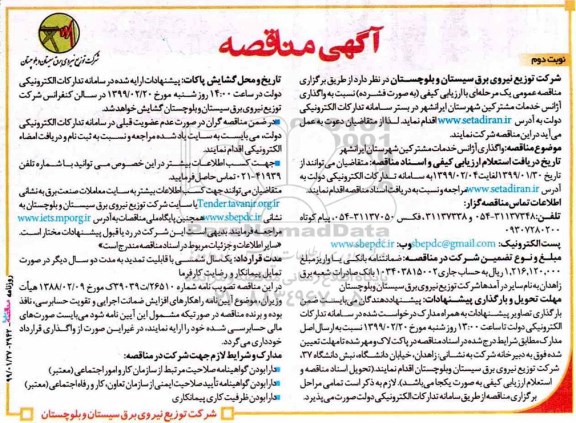 شرکت توزیع نیروی برق سیستان و بلوچستان
آگهی مناقصه
نوبت دوم
شرکت توزیع نیروی برق سیستان و بلوچستان در نظر دارد از طریق برگزاری
مناقصه عمومی یک مرحله‌ای با ارزیابی کیفی (به صورت فشرده) نسبت به واگذاری
آژانس خدمات مشترکین شهرستان ایرانشهر در بستر سامانه تدارکات الکترونیکی
دولت به آدرس www.setadiran.ir اقدام نماید. لذا از متقاضیان دعوت به عمل
می آید در این مناقصه شرکت نمایند.
موضوع مناقصه: واگذاری آژانس خدمات مشترکین شهرستان ایرانشهر
تاریخ دریافت استعلام ارزیابی کیفی و اسناد مناقصه: متقاضیان می توانند از
تاریخ ۱۳۹۹/۰۱/۳۰ لغایت ۱۳۹۹/۰۲/۰۴ به سامانه تدارکات الکترونیکی دولت به
آدرس www.setadiran.ir مراجعه و نسبت به دریافت اسناد مناقصه اقدام نمایند.
اطلاعات تماس مناقصه گزار:
تلفن: ۳۱۱۳۷۳۴۸-۰۵۴ و ۳۱۱۳۷۳۳۸، فکس ۳۱۱۳۷۰۵۰-۰۵۴، پیام کوتاه
۰۹۳۰۷۲۸۰۲۰۰
پست الکترونیک: sbepdc@gmail.com وب: www.sbepdc.ir
مبلغ و نوع تضمین شرکت در مناقصه: ضمانتنامه بانکی یا واریز مبلغ
۱,۲۱۶,۱۲۰,۰۰۰ ریال به حساب جاری ۱۰۳۴۰۳۸۱۵۰۰۲ بانک صادرات شعبه برق
زاهدان به نام سایر درآمدها شرکت توزیع نیروی برق سیستان و بلوچستان
مهلت تحویل و بارگذاری پیشنهادات: پیشنهاددهندگان می بایست ضمن
بارگذاری تصاویر پیشنهادات به همراه مدارک درخواست شده در سامانه تدارکات
الکترونیکی دولت تا ساعت ۱۳:۰۰ روز شنبه مورخ ۱۳۹۹/۰۲/۲۰ نسبت به ارسال اصل
مدارک مطابق شرایط درج شده در اسناد مناقصه در پاکت لاک و مهر شده تا مهلت تعیین
شده فوق به دبیرخانه شرکت به نشانی: زاهدان، خیابان دانشگاه، نبش دانشگاه ۳۷،
شرکت توزیع نیروی برق سیستان و بلوچستان اقدام نمایند. (تحویل اسناد مناقصه و
استعلام ارزیابی کیفی به صورت یکجا می باشد). لازم به ذکر است تمامی مراحل
برگزاری مناقصه از طریق سامانه تدارکات الکترونیکی دولت صورت می پذیرد.
تاریخ و محل گشایش پاکات: پیشنهادات ارایه شده در سامانه تدارکات الکترونیکی
دولت در ساعت ۱۴:۰۰ روز شنبه مورخ ۱۳۹۹/۰۲/۲۰ در سالن کنفرانس شرکت
توزیع نیروی برق سیستان و بلوچستان گشایش خواهد شد.
در ضمن مناقصه گران در صورت عدم عضویت قبلی در سامانه تدارکات الکترونیکی
دولت، می بایست به سایت یاد شده مراجعه و نسبت به ثبت نام و دریافت امضاء
الکترونیکی اقدام نمایند.
جهت کسب اطلاعات بیشتر در این خصوص می توانید با شماره تلفن
۴۱۹۳۹-۰۲۱ تماس حاصل فرمایید.
متقاضیان می توانند جهت کسب اطلاعات بیشتر به سایت معاملات صنعت برق به نشانی
Tender.tavanir.org.ir یا سایت شرکت توزیع نیروی برق سیستان و بلوچستان به
نشانی www.sbepdc.ir همچنین پایگاه ملی مناقصات به آدرس www.iets.mporg.ir
مراجعه فرمایند. بدیهی است این شرکت در رد یا قبول پیشنهادات مختار است.
«سایر اطلاعات و جزئیات مربوط در اسناد مناقصه مندرج است»
مدت قرارداد: یک سال شمسی با قابلیت تمدید به مدت دو سال دیگر در صورت
تمایل پیمانکار و رضایت کارفرما
در این مناقصه تصویب نامه شماره ۲۶۵۱۰/ت۳۹۰۳۹ک مورخ ۱۳۸۸/۰۲/۰۹ هیأت
وزیران موضوع آیین نامه راهکارهای افزایش ضمانت اجرایی و تقویت حسابرسی، نافذ
بوده و برنده مناقصه در صورتیکه مشمول این آیین نامه شود می بایست صورت های
مالی حسابرسی شده خود را ارایه نمایند، در غیر این صورت از واگذاری قرارداد
خودداری می گردد.
مدارک و شرایط لازم جهت شرکت در مناقصه:
دارا بودن گواهینامه صلاحیت مرتبط از سازمان کار و امور اجتماعی (معتبر)
دارا بودن گواهینامه تأیید صلاحیت ایمنی از سازمان تعاون، کار و رفاه اجتماعی (معتبر)
دارا بودن ظرفیت کاری پیمانکاری
شرکت توزیع نیروی برق سیستان و بلوچستان
شرکت توزیع نیروی برق سیستان و بلوچستان
روزنامه
۹۹/۰۱/۲۷